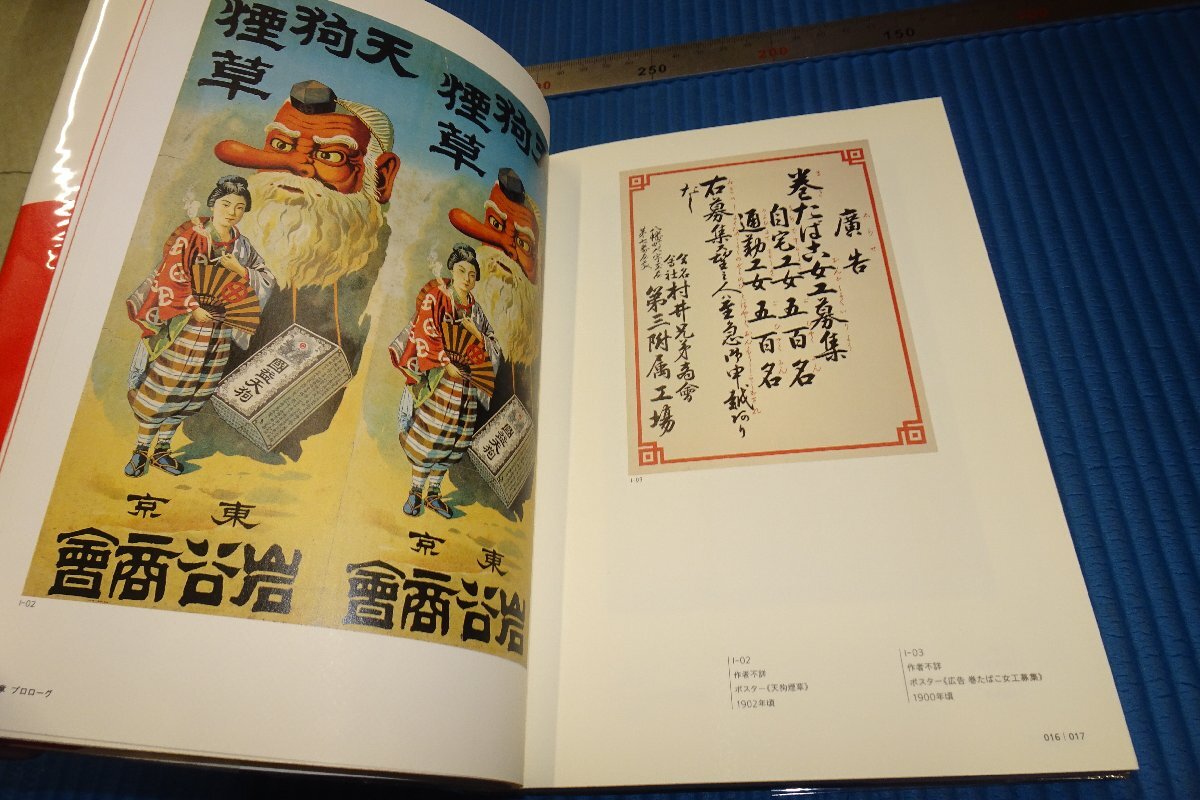 天狗
煙草
天狗
煙草
國益天狗
國益天狗
東京
岩谷商會
東京
岩谷商會
I-02
章 プロローグ
廣告
巻たばこ女工募集
自宅工女 五百名
通勤工女 五百名
右募集
合名会社村井兄弟商會
第三附属工場
I-03
I-02
作者不詳
ポスター《天狗煙草》
1902年頃
I-03
作者不詳
ポスター《広告 巻たばこ女工募集》
1900年頃
016 | 017
250
200
150